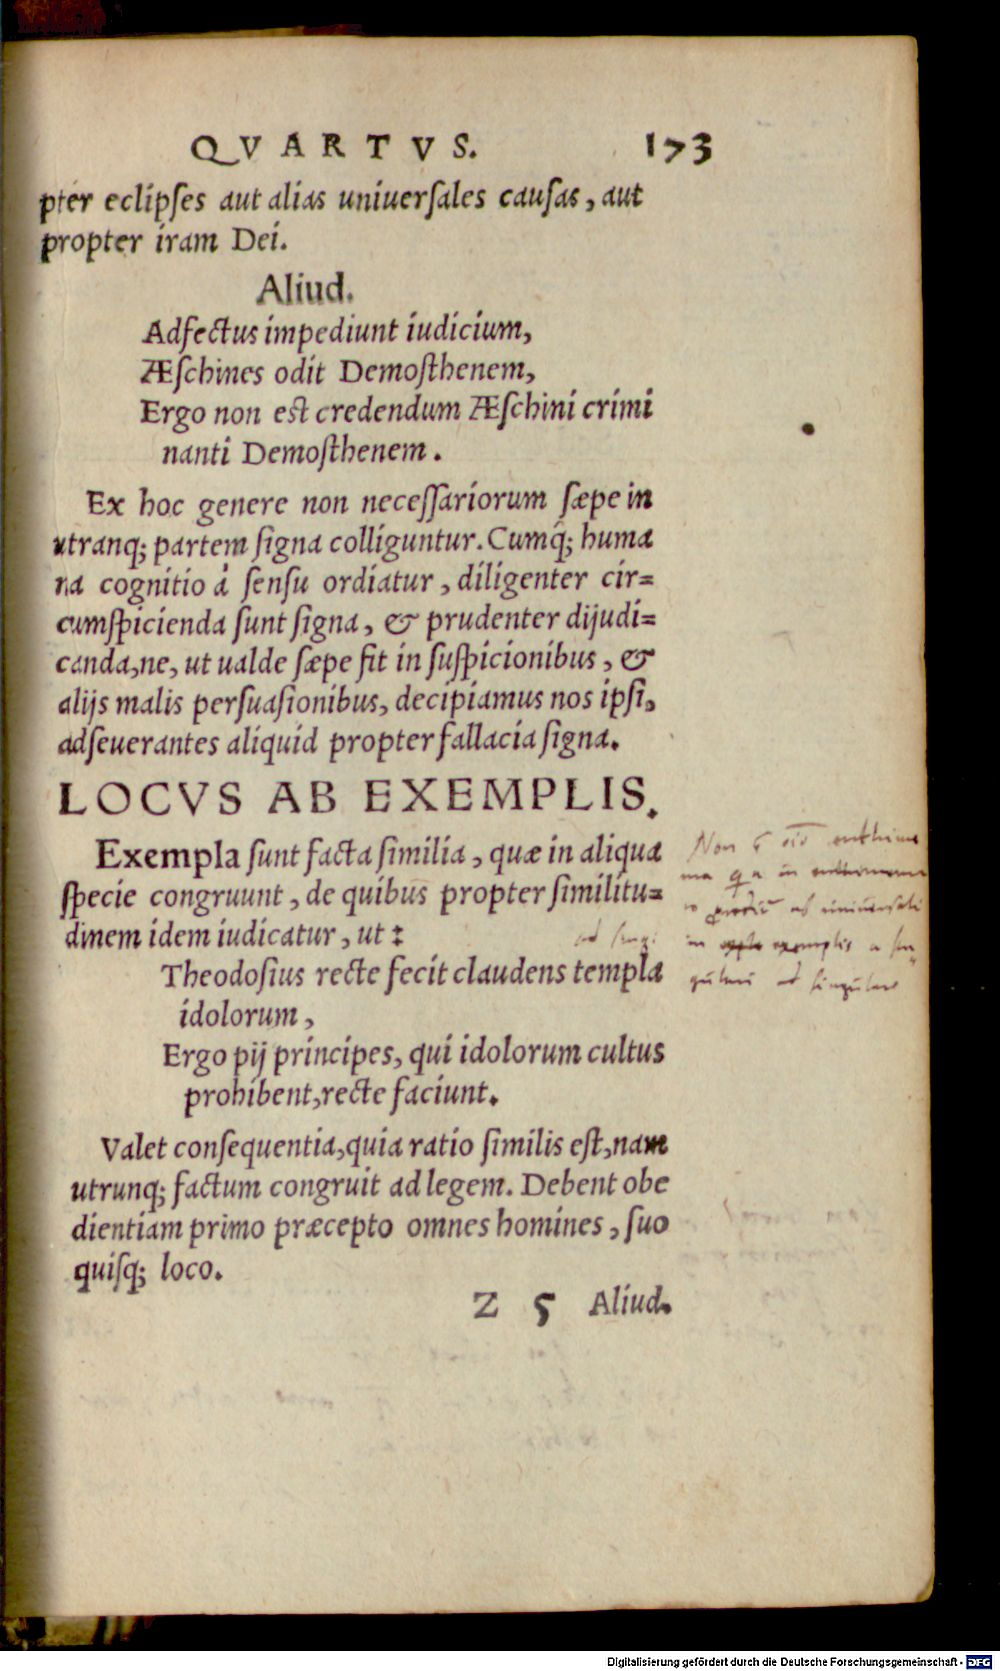 QVARTVS. 173
pter eclipses aut alias uniuersales causas, aut
propter iram Dei.
Aliud.
Adfectus impediunt iudicium,
Æschines odit Demosthenem,
Ergo non est credendum Æschini crimi
nanti Demosthenem.
Ex hoc genere non necessariorum sæpe in
utranq; partem signa colliguntur. Cumq́; huma
na cognitio à sensu ordiatur, diligenter cir=
cumspicienda sunt signa, & prudenter dijudi=
canda, ne, ut ualde sæpe fit in suspicionibus, &
alijs malis persuasionibus, decipiamus nos ipsi,
adseuerantes aliquid propter fallacia signa.
LOCVS AB EXEMPLIS.
Exempla sunt facta similia, quæ in aliqua
specie congruunt, de quibus propter similitu=
dinem idem iudicatur, ut:
Theodosius recte fecit claudens templa
idolorum,
Ergo pij principes, qui idolorum cultus
prohibent, recte faciunt.
Valet consequentia, quia ratio similis est, nam
utrunq; factum congruit ad legem. Debent obe
dientiam primo præcepto omnes homines, suo
quisq; loco.
Z 5 Aliud.
Non
in
ab uniuersali
in exemplis a sin
gulari ad singulare
Digitalisierung gefördert durch die Deutsche Forschungsgemeinschaft - DFG